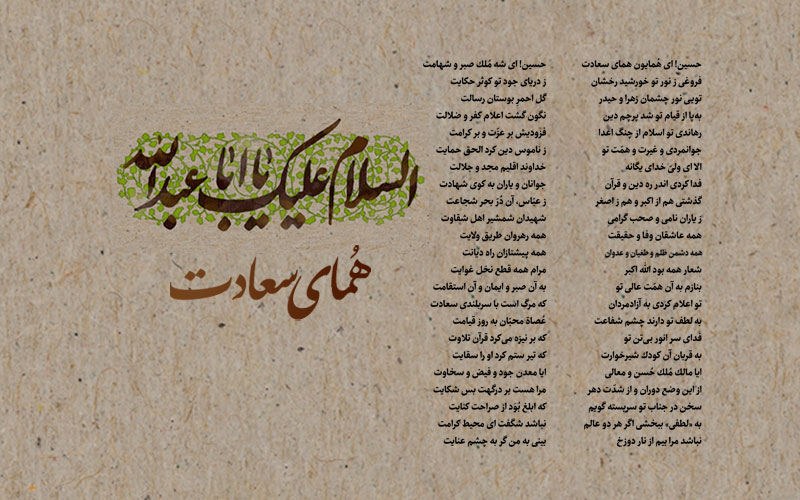 السلام علیک یا ابا عبدالله
هُمای سعادت
حسین! ای هُمایون همای سعادت حسین! ای شه مُلك صبر و شهامت
فروغی ز نور تو خورشید رخشان ز دریای جود تو کوثر حکایت
تویی نور چشمان زهرا و حیدر گل احمر بوستان رسالت
به‌پا از قیام تو شد پرچم دین نگون گشت اعلام کفر و ضلالت
رهاندی تو اسلام از چنگ اعدا فزودیش بر عزّت و بر کرامت
جوانمردی و غیرت و همّت تو ز ناموس دین کرد الحق حمایت
الا ای ولیّ خدای یگانه خداوند اقلیم مجد و جلالت
فدا کردی اندر ره دین و قرآن جوانان و یاران به کوی شهادت
گذشتی هم از اکبر و هم ز اصغر ز عبّاس، آن دُرّ بحر شجاعت
ز یاران نامی و صحب گرامی شهیدان شمشیر اهل شقاوت
همه عاشقان وفا و حقیقت همه رهروان طریق ولایت
همه دشمن ظلم و طغیان و عدوان همه پیشتازان راه دیانت
شعار همه بود الله اکبر مرام همه قطع نخل غوایت
بنازم به آن همّت عالی تو به آن صبر و ایمان و آن استقامت
تو اعلام کردی به آزادمردان که مرگ است با سربلندی سعادت
به لطف تو دارند چشم شفاعت عُصاة محبّان به روز قیامت
فدای سر انور بی‌تن تو که بر نیزه می‌کرد قرآن تلاوت
به قربان آن کودك شیرخوارت که تیر ستم کرد او را سقایت
ایا مالك مُلك حُسن و معالی ایا معدن جود و فیض و سخاوت
از این وضع دوران و از شدّت دهر مرا هست بر درگهت بس شکایت
سخن در جناب تو سربسته گویم که ابلغ بُوَد از صراحت کنایت
به «لطفی» ببخشی اگر هر دو عالم نباشد شگفت ای محیط کرامت
نباشد مرا بیم از نار دوزخ بینی به من گر به چشم عنایت